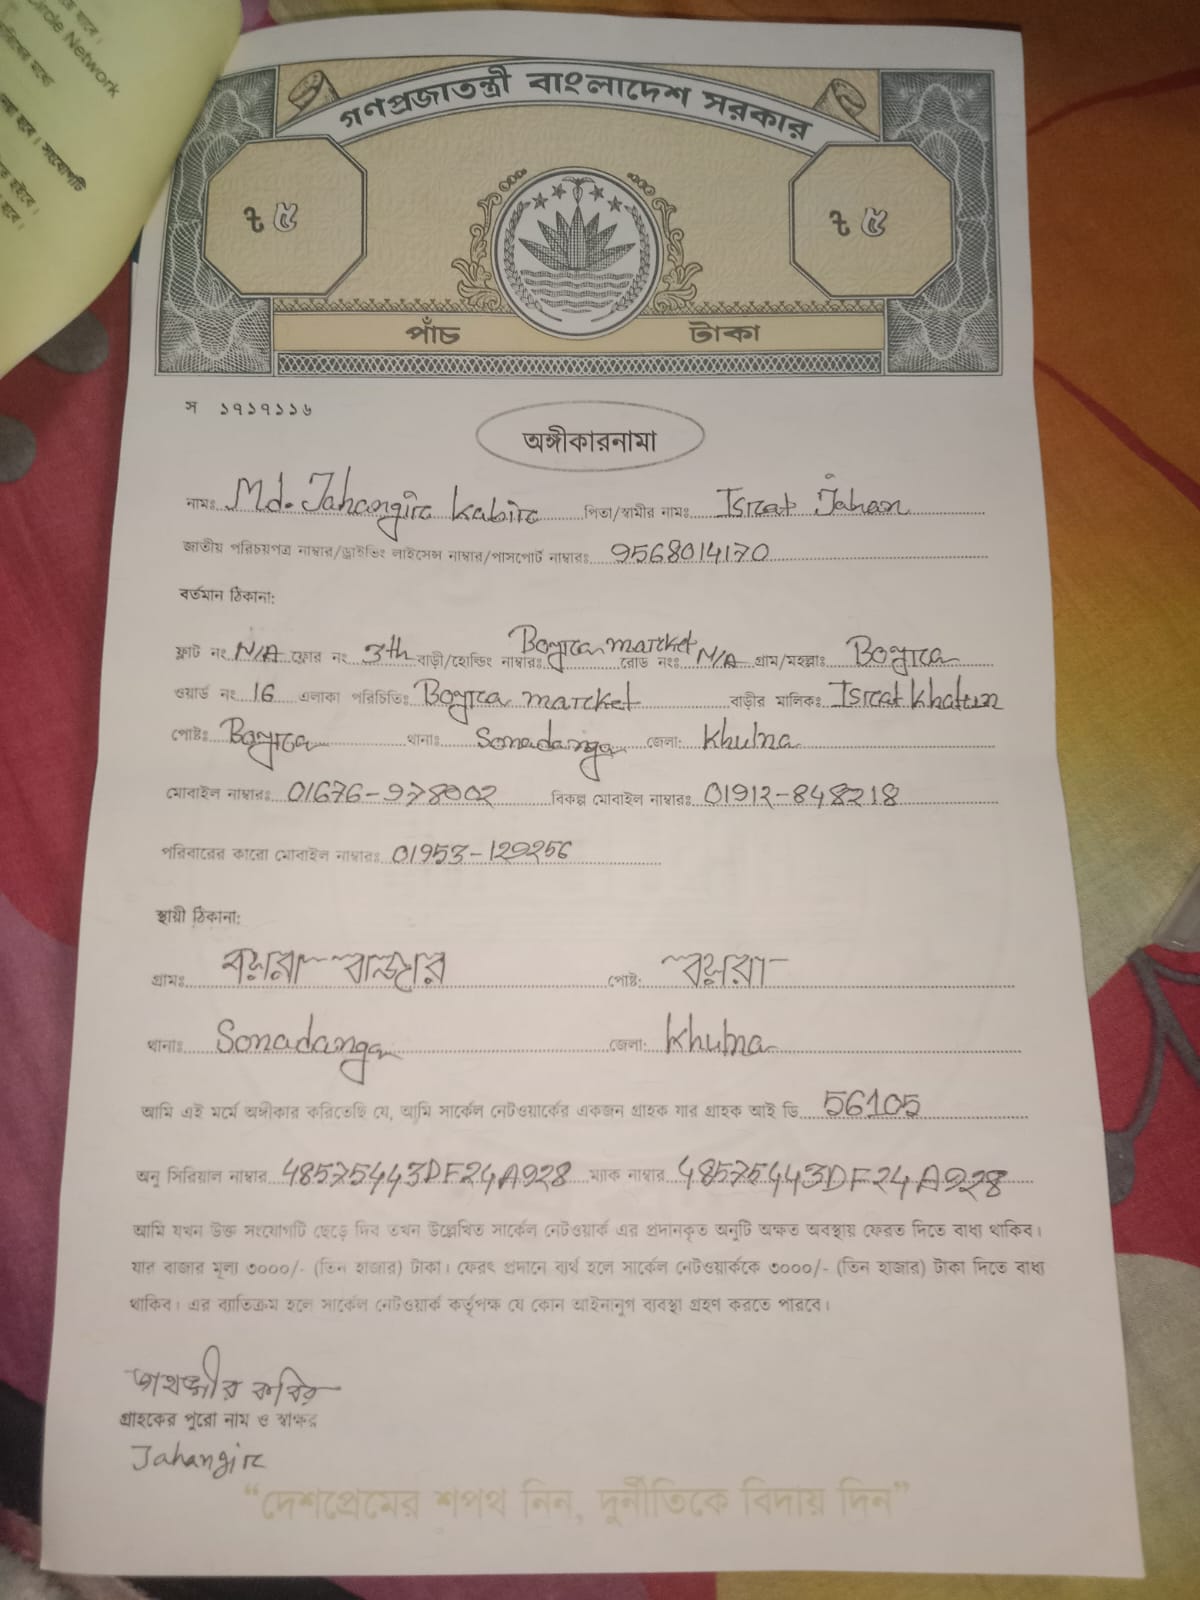 Circle Network
সংযোগটি
গণপ্রজাতন্ত্রী বাংলাদেশ সরকার
৳ ৫ ৳ ৫
পাঁচ টাকা
স ১৭১৭১১৬
অঙ্গীকারনামা
নামঃ Md. Jahangir kabir পিতা/স্বামীর নামঃ Israt Jahan
জাতীয় পরিচয়পত্র নাম্বার/ড্রাইভিং লাইসেন্স নাম্বার/পাসপোর্ট নাম্বারঃ 9568014170
বর্তমান ঠিকানা:
ফ্লাট নং N/A ফ্লোর নং 3th বাড়ী/হোল্ডিং নাম্বারঃ Boyra market রোড নংঃ N/A গ্রাম/মহল্লাঃ Boyra
ওয়ার্ড নং 16 এলাকা পরিচিতিঃ Boyra market বাড়ীর মালিকঃ Israt khatun
পোষ্টঃ Boyra থানাঃ Sonadanga জেলা: Khulna
মোবাইল নাম্বারঃ 01676-978002 বিকল্প মোবাইল নাম্বারঃ 01912-848218
পরিবারের কারো মোবাইল নাম্বারঃ 01953-129256
স্থায়ী ঠিকানা:
গ্রামঃ বয়রা বাজার পোষ্ট: বয়রা
থানাঃ Sonadanga জেলা: Khulna
আমি এই মর্মে অঙ্গীকার করিতেছি যে, আমি সার্কেল নেটওয়ার্কের একজন গ্রাহক যার গ্রাহক আই ডি 56105
অনু সিরিয়াল নাম্বার 48575443DF24A928 ম্যাক নাম্বার 48575443DF24A928
আমি যখন উক্ত সংযোগটি ছেড়ে দিব তখন উল্লেখিত সার্কেল নেটওয়ার্ক এর প্রদানকৃত অনুটি অক্ষত অবস্থায় ফেরত দিতে বাধ্য থাকিব।
যার বাজার মূল্য ৩০০০/- (তিন হাজার) টাকা। ফেরৎ প্রদানে ব্যর্থ হলে সার্কেল নেটওয়ার্ককে ৩০০০/- (তিন হাজার) টাকা দিতে বাধ্য
থাকিব। এর ব্যতিক্রম হলে সার্কেল নেটওয়ার্ক কর্তৃপক্ষ যে কোন আইনানুগ ব্যবস্থা গ্রহণ করতে পারবে।
জাহাঙ্গীর কবির
গ্রাহকের পুরো নাম ও স্বাক্ষর
Jahangir
“দেশপ্রেমের শপথ নিন, দুর্নীতিকে বিদায় দিন”